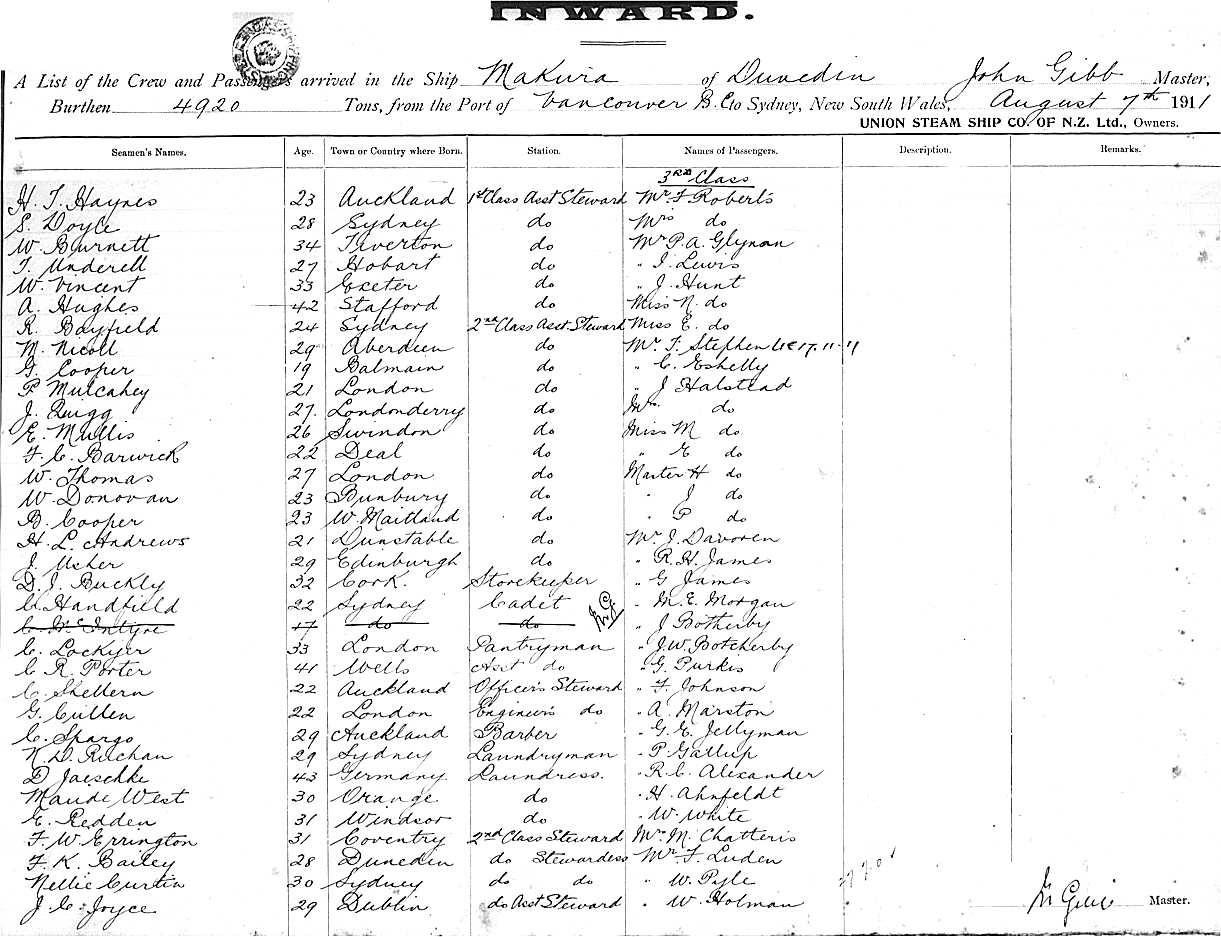 INWARD.
A List of the Crew and Passengers arrived in the Ship Makura of Dunedin John Gibb Master,
Burthen 4920 Tons, from the Port of Vancouver B.C to Sydney, New South Wales, August 7th 1911
UNION STEAM SHIP CO. OF N.Z. Ltd., Owners.
Seamen's Names. Age. Town or Country where Born. Station. Names of Passengers. Description. Remarks.
3RD Class
H. T. Haynes 23 Auckland 1st Class Asst Steward Mr F Roberts
S. Doyle 28 Sydney do Mrs do
W. Burnett 34 Tiverton do Mr P. A. Glynan
T. Underell 27 Hobart do " I. Lewis
W. Vincent 33 Exeter do " J. Hunt
A. Hughes 42 Stafford do Miss N. do
R. Bayfield 24 Sydney 2nd Class Asst Steward Miss E. do
M. Nicoll 29 Aberdeen do Mr. T. Stephen
G. Cooper 19 Balmain do " C. Eshelly
P. Mulcahey 21 London do " J Halstead
J. Quigg 27. Londonderry do Mrs do
E. Mullis 26 Swindon do Miss M do
F. C. Barwick 22 Deal do " E do
W. Thomas 27 London do Master H do
W. Donovan 23 Bunbury do " J do
B. Cooper 23 W. Maitland do " P do
H. L. Andrews 21 Dunstable do Mr. J. Davoren
J. Usher 29 Edinburgh do " R. H. James
D. J. Buckly 32 Cork. Storekeeper " G James
C. Handfield 22 Sydney Cadet " M. E. Morgan
C. McIntyre 17 do do JG " J Botherby
C. Lockyer 33 London Pantryman " J. W. Botcherby
C R. Porter 41 Wells Asst do " G. Purkis
C. Shellern 22 Auckland Officer's Steward " F. Johnson
G. Cullen 22 London Engineers do " A. Marston
C. Spargo 29 Auckland Barber " G. E. Jellyman
N. D. Ruchan 29 Sydney Laundryman " P. Gallup
D. Jaeschke 43 Germany Laundress. " R. C. Alexander
Maude West 30 Orange do " H. Ahnfeldt
E. Redden 31 Windsor do " W. White
F. W. Errington 31 Coventry 2nd Class Steward Mrs M. Chatteris
F. K. Bailey 28 Dunedin do Stewardess Mr. F. Luden
Nellie Curtin 30 Sydney do do " W. Pyle
J. C. Joyce 29 Dublin do Asst Steward " W. Holman
Master.